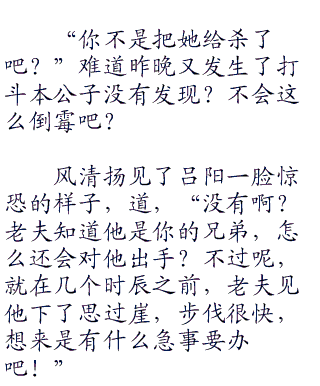 “你不是把她给杀了
吧？”难道昨晚又发生了打
斗本公子没有发现？不会这
么倒霉吧？
风清扬见了吕阳一脸惊
恐的样子，道，“没有啊？
老夫知道他是你的兄弟，怎
么还会对他出手？不过呢，
就在几个时辰之前，老夫见
他下了思过崖，步伐很快，
想来是有什么急事要办
吧！”